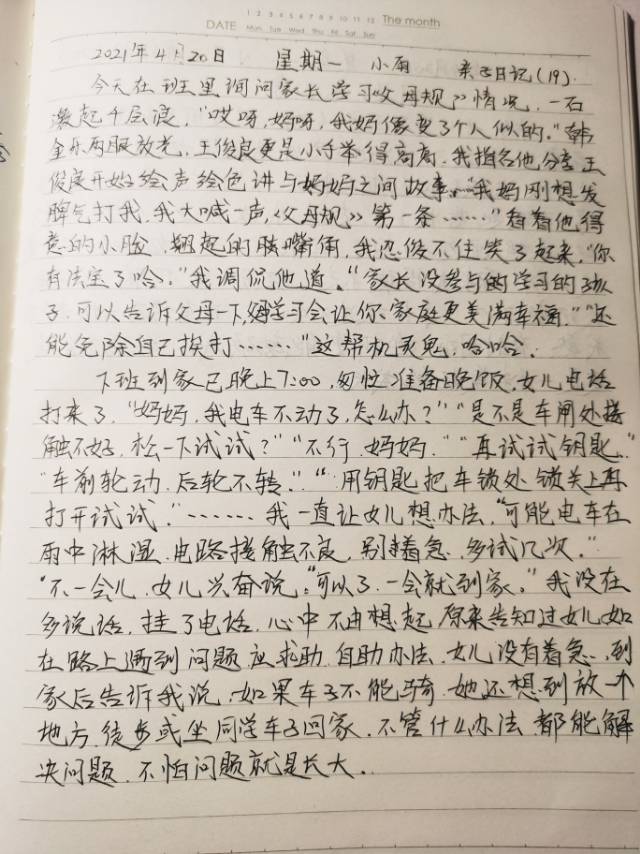 1 2 3 4 5 6 7 8 9 10 11 12 The month
DATE Mon Tue Wed Thu Fri Sat Sun
2021年4月20日 星期一 小雨 亲子日记(19)
今天在班里询问家长学习《父母规》情况,一石
激起千层浪,"哎呀,妈呀,我妈像变了个人似的。"韩
金乐两眼放光,王俊良更是小手举得高高,我指名他分享,王
俊良开始绘声绘色讲与妈妈之间故事。"我妈刚想发
脾气打我,我大喊一声,《父母规》第一条……"看着他得
意的小脸,翘起的嘴角,我忍俊不住笑了起来,"你
有法宝了哈。"我调侃他道。"家长没参与的学习的孩
子,可以告诉父母一下,学习会让你家庭更美满幸福。""还
能免除自己挨打……"这帮机灵鬼,哈哈。
下班到家已晚上7:00,匆忙准备晚饭,女儿电话
打来了,"妈妈,我电车不动了,怎么办?""是不是车闸处接
触不好,松一下试试?""不行,妈妈。""再试试钥匙。"
"车前轮动,后轮不转。""用钥匙把车锁处锁关上再
打开试试。"……我一直让女儿想办法,"可能电车在
雨中淋湿,电路接触不良,别着急,多试几次。"
"不一会儿,女儿兴奋说:"可以了,一会就到家。"我没在
多说话,挂了电话,心中不由想起原来告知过女儿如
在路上遇到问题应求助、自助办法,女儿没有着急,到
家后告诉我说,如果车子不能骑,她还想到放一个
地方,徒步或坐同学车子回家,不管什么办法都能解
决问题,不怕问题就是长大。